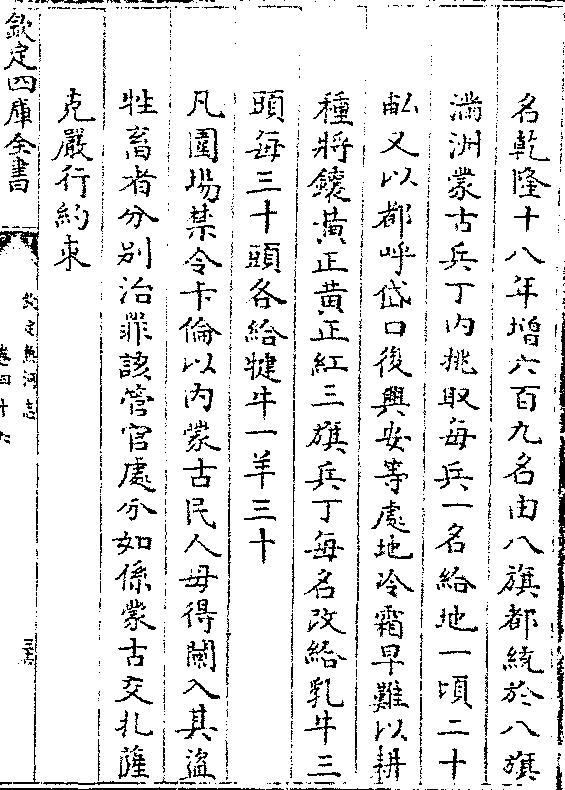 名乾隆十八年增六百九名由八旗都統於八旗
滿洲蒙古兵丁内挑取每兵一名給地一頃二十
畝又以都呼岱口後興安等處地冷霜早難以耕
種將鑲黄正黄正紅三旗兵丁每名改給乳牛三
頭每三十頭各給犍牛一羊三十
凡圍場禁令卡倫以内蒙古民人毋得闌入其盜
牲畜者分别治罪該管官處分如係蒙古交扎薩
克嚴行約束
欽定四庫全書
欽定熱河志
卷四十六